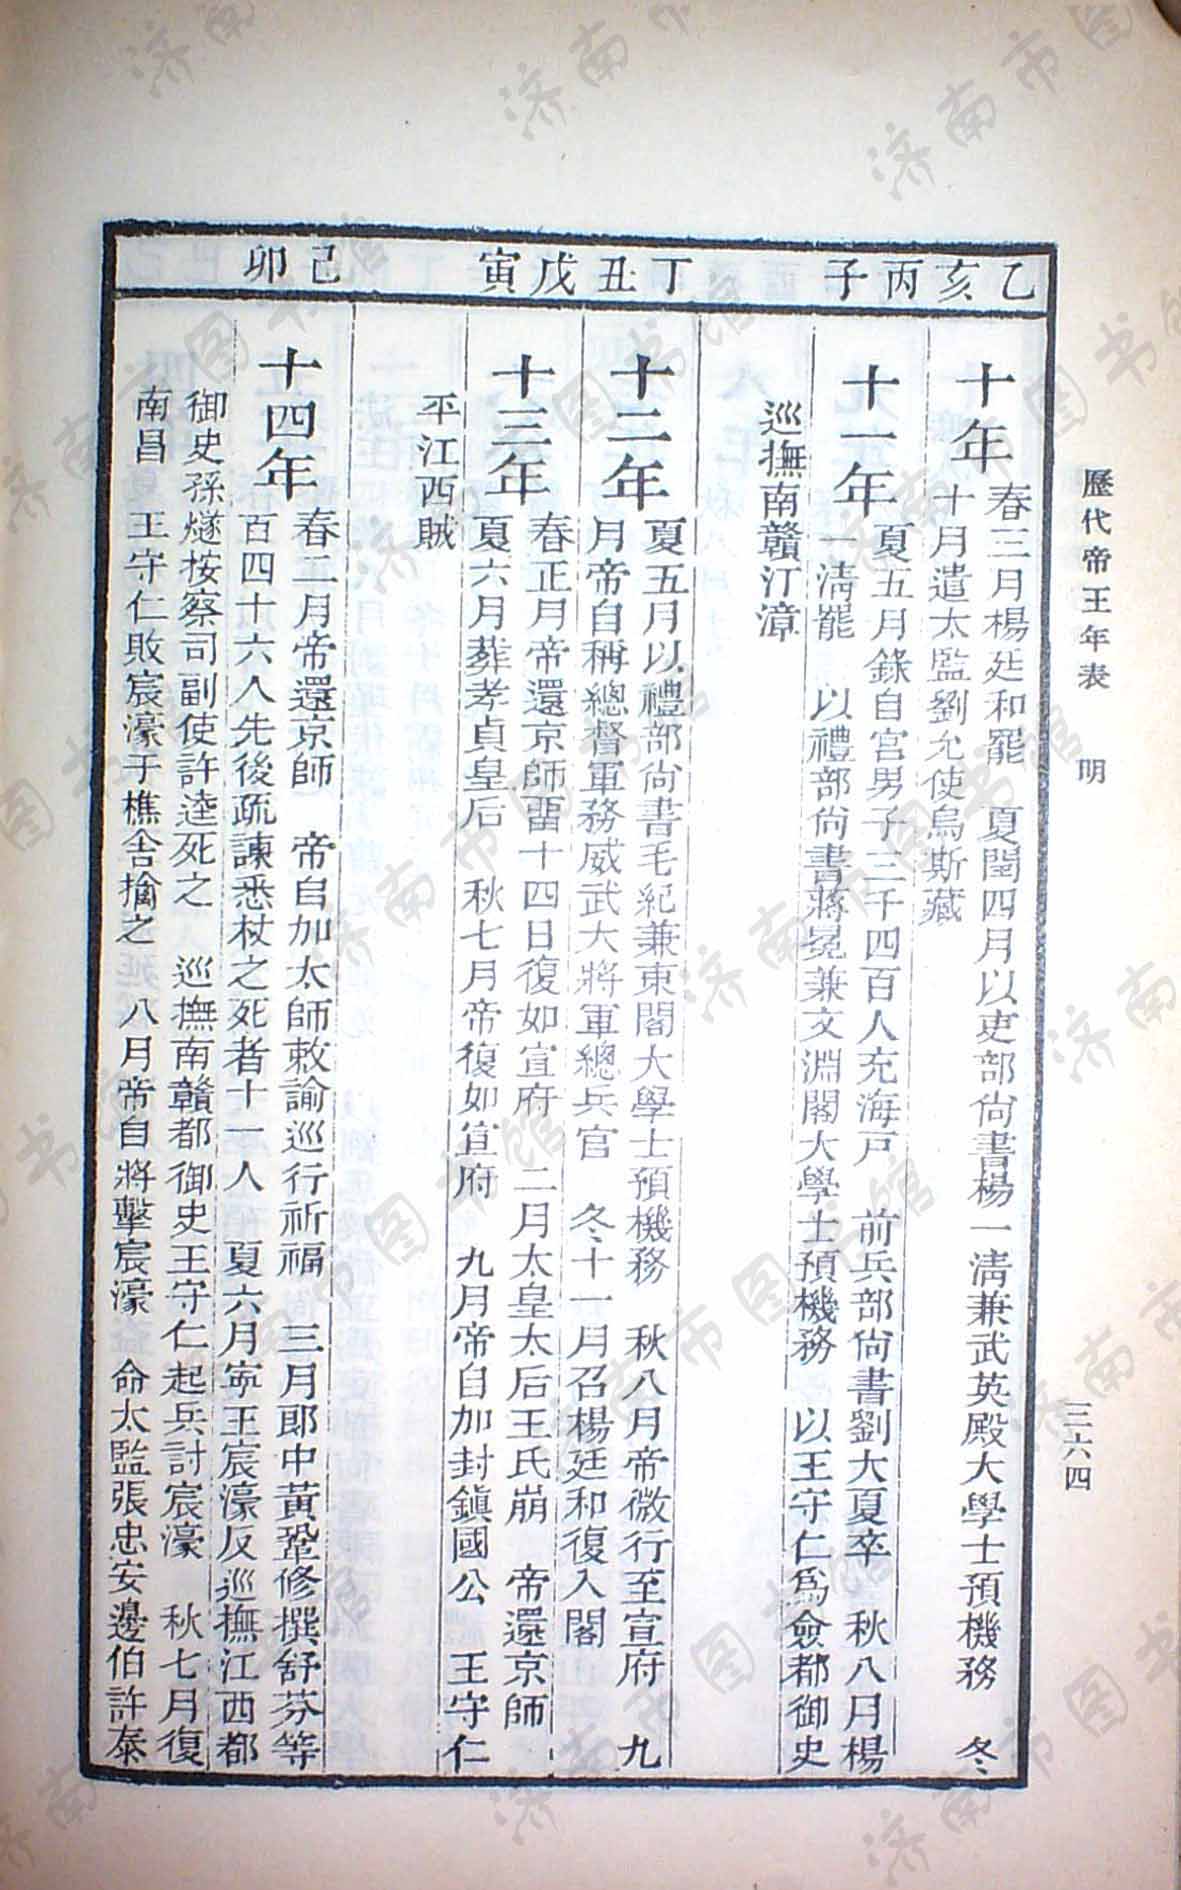 歷代帝王年表　明
三六四
乙亥
十年
春三月楊廷和罷　夏閏四月以吏部尙書楊一淸兼武英殿大學士預機務　冬
十月遣太監劉允使烏斯藏
丙子
十一年
夏五月錄自宮男子三千四百人充海戸　前兵部尙書劉大夏卒　秋八月楊
一淸罷　以禮部尙書蔣冕兼文淵閣大學士預機務　以王守仁爲僉都御史
巡撫南贛汀漳
丁丑
十二年
夏五月以禮部尙書毛紀兼東閣大學士預機務　秋八月帝微行至宣府　九
月帝自稱總督軍務威武大將軍總兵官　冬十一月召楊廷和復入閣
戊寅
十三年
春正月帝還京師畱十四日復如宣府　二月太皇太后王氏崩　帝還京師
夏六月葬孝貞皇后　秋七月帝復如宣府　九月帝自加封鎭國公　王守仁
平江西賊
己卯
十四年
春二月帝還京師　帝自加太師敕諭巡行祈福　三月郎中黃鞏修撰舒芬等
百四十六人先後疏諫悉杖之死者十一人　夏六月寧王宸濠反巡撫江西都
御史孫燧按察司副使許逵死之　巡撫南贛都御史王守仁起兵討宸濠　秋七月復
南昌　王守仁敗宸濠于樵舍擒之　八月帝自將擊宸濠　命太監張忠安邊伯許泰
济南市图书馆